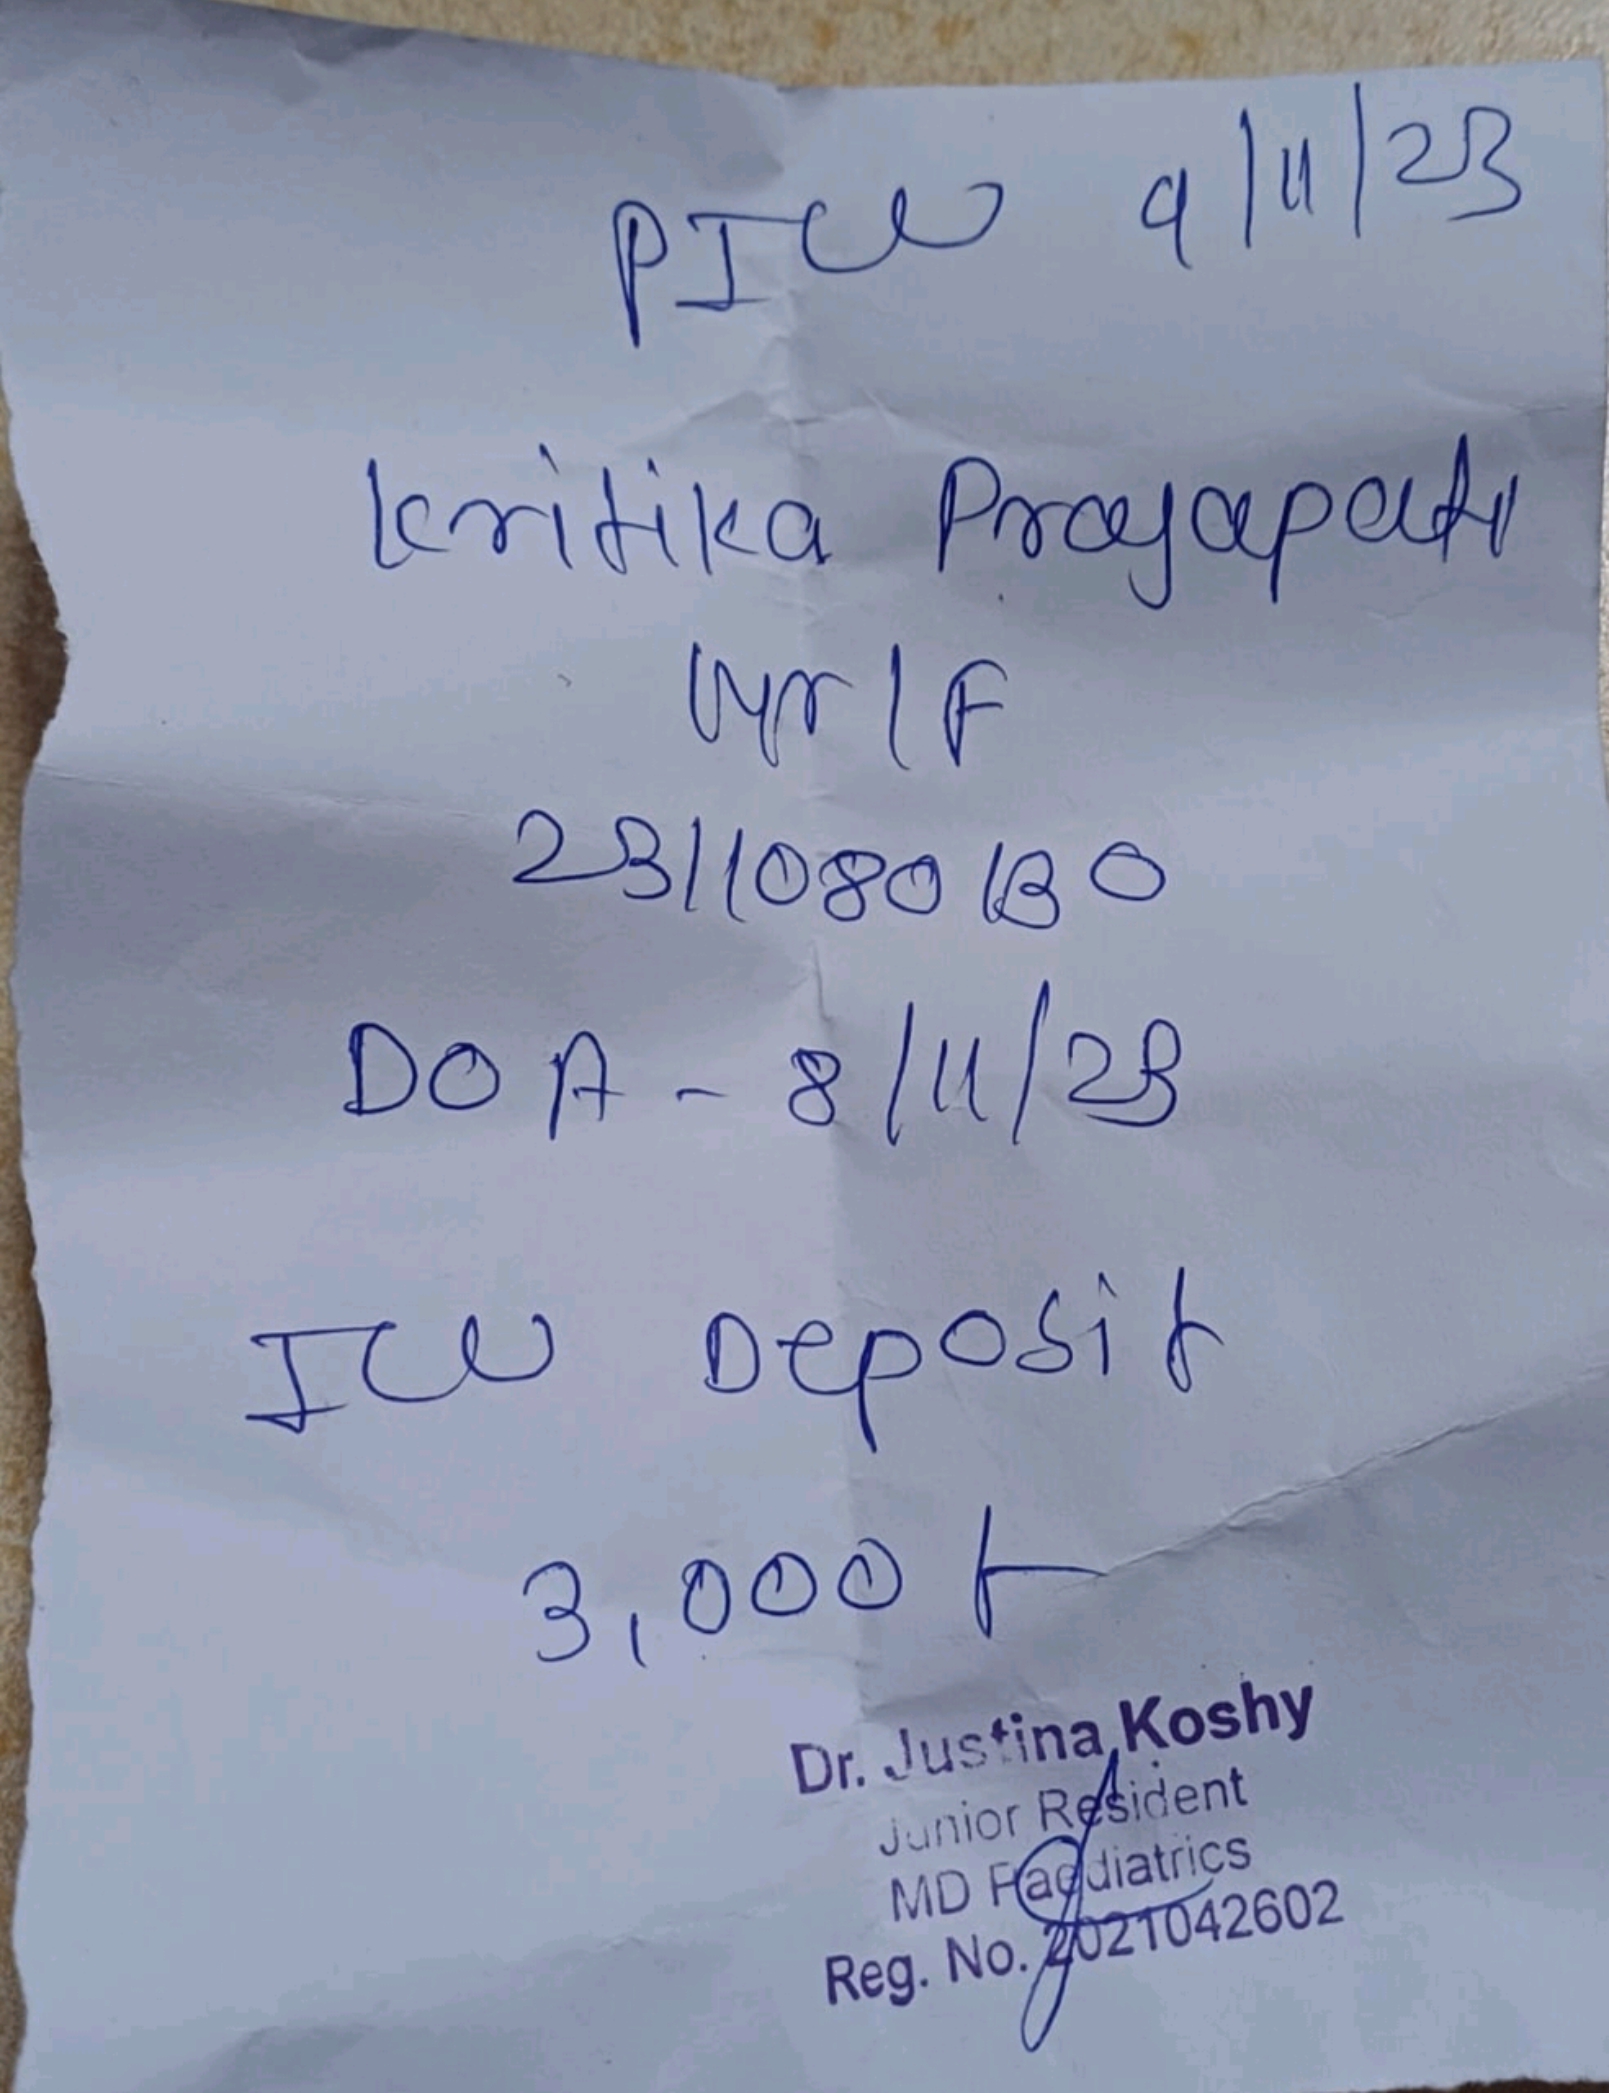 PICU 9/11/23
Kritika Prajapati
yr/F
2311080130
DOA - 8/11/23
ICU Deposit
3,000
Dr. Justina Koshy
Junior Resident
MD Paediatrics
Reg. No. 2021042602